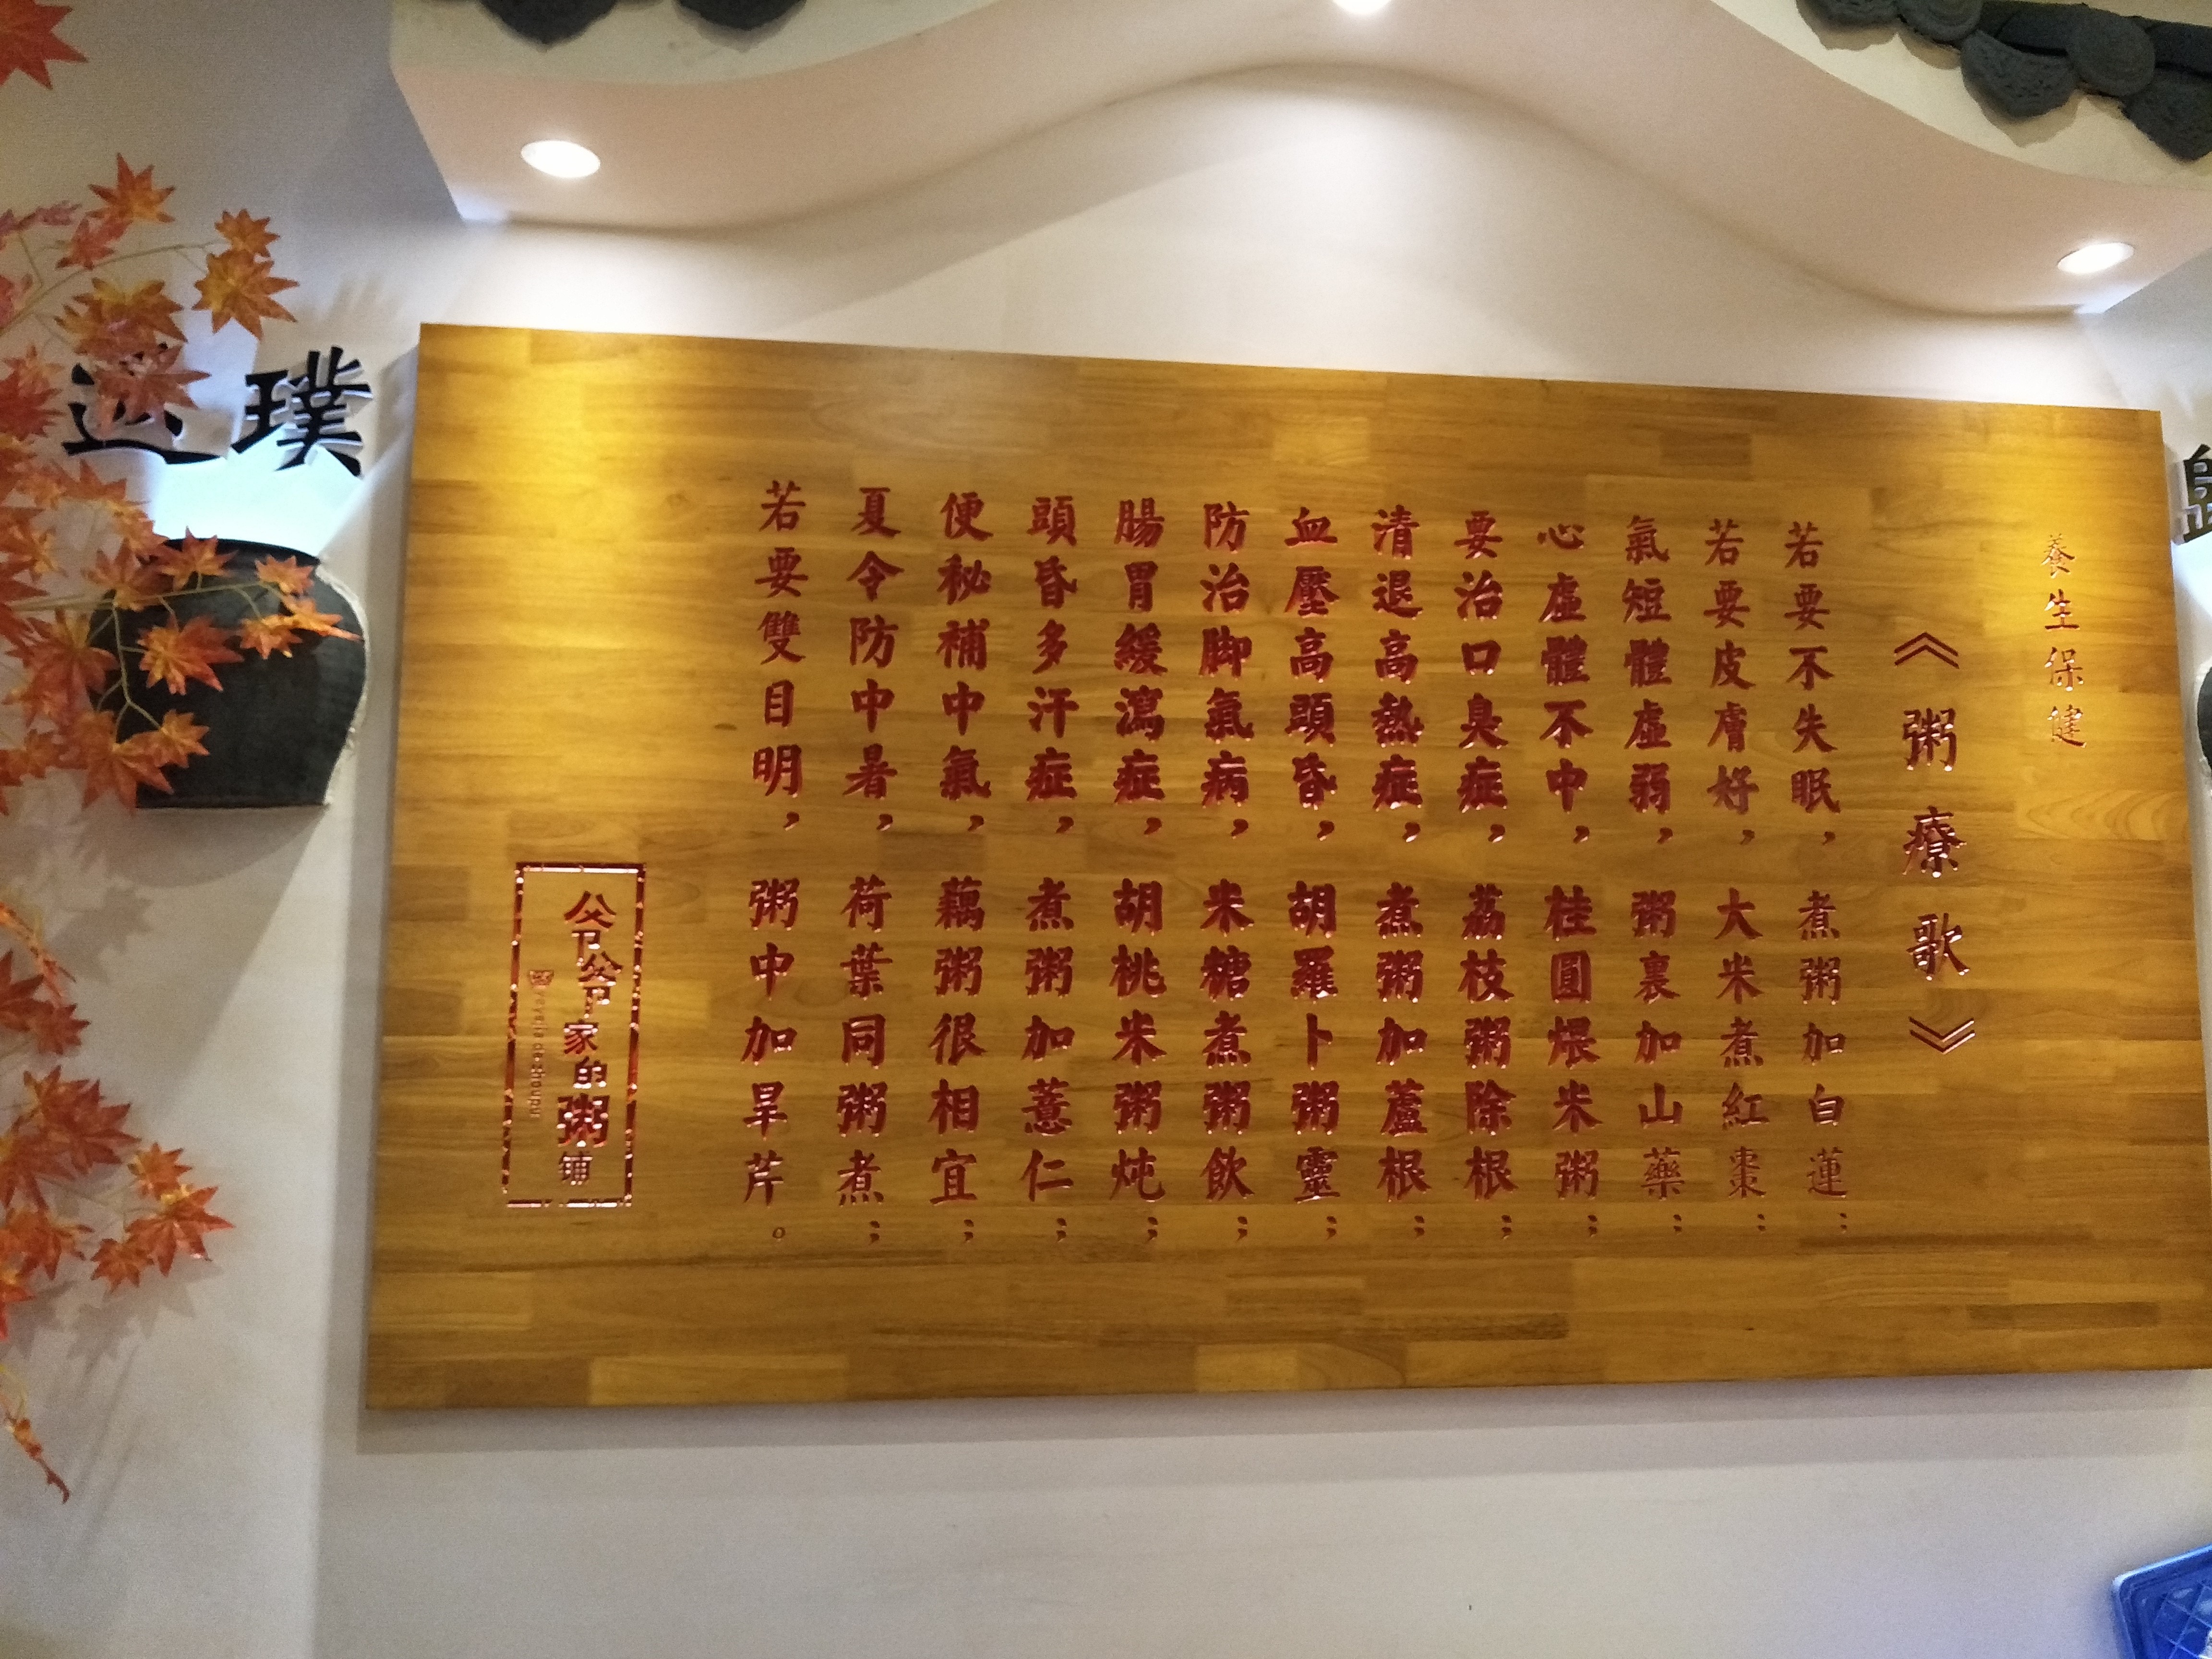 養生保健
《粥療歌》
若要不失眠，煮粥加白蓮；
若要皮膚好，大米煮紅棗；
氣短體虛弱，粥裏加山藥；
心虛體不中，桂圓煨米粥；
要治口臭症，荔枝粥除根；
清退高熱症，煮粥加蘆根；
血壓高頭昏，胡羅卜粥靈；
防治脚氣病，米糖煮粥飲；
腸胃緩瀉症，胡桃米粥炖；
頭昏多汗症，煮粥加薏仁；
便秘補中氣，藕粥很相宜；
夏令防中暑，荷葉同粥煮；
若要雙目明，粥中加旱芹。
爷爷家的粥铺
璞